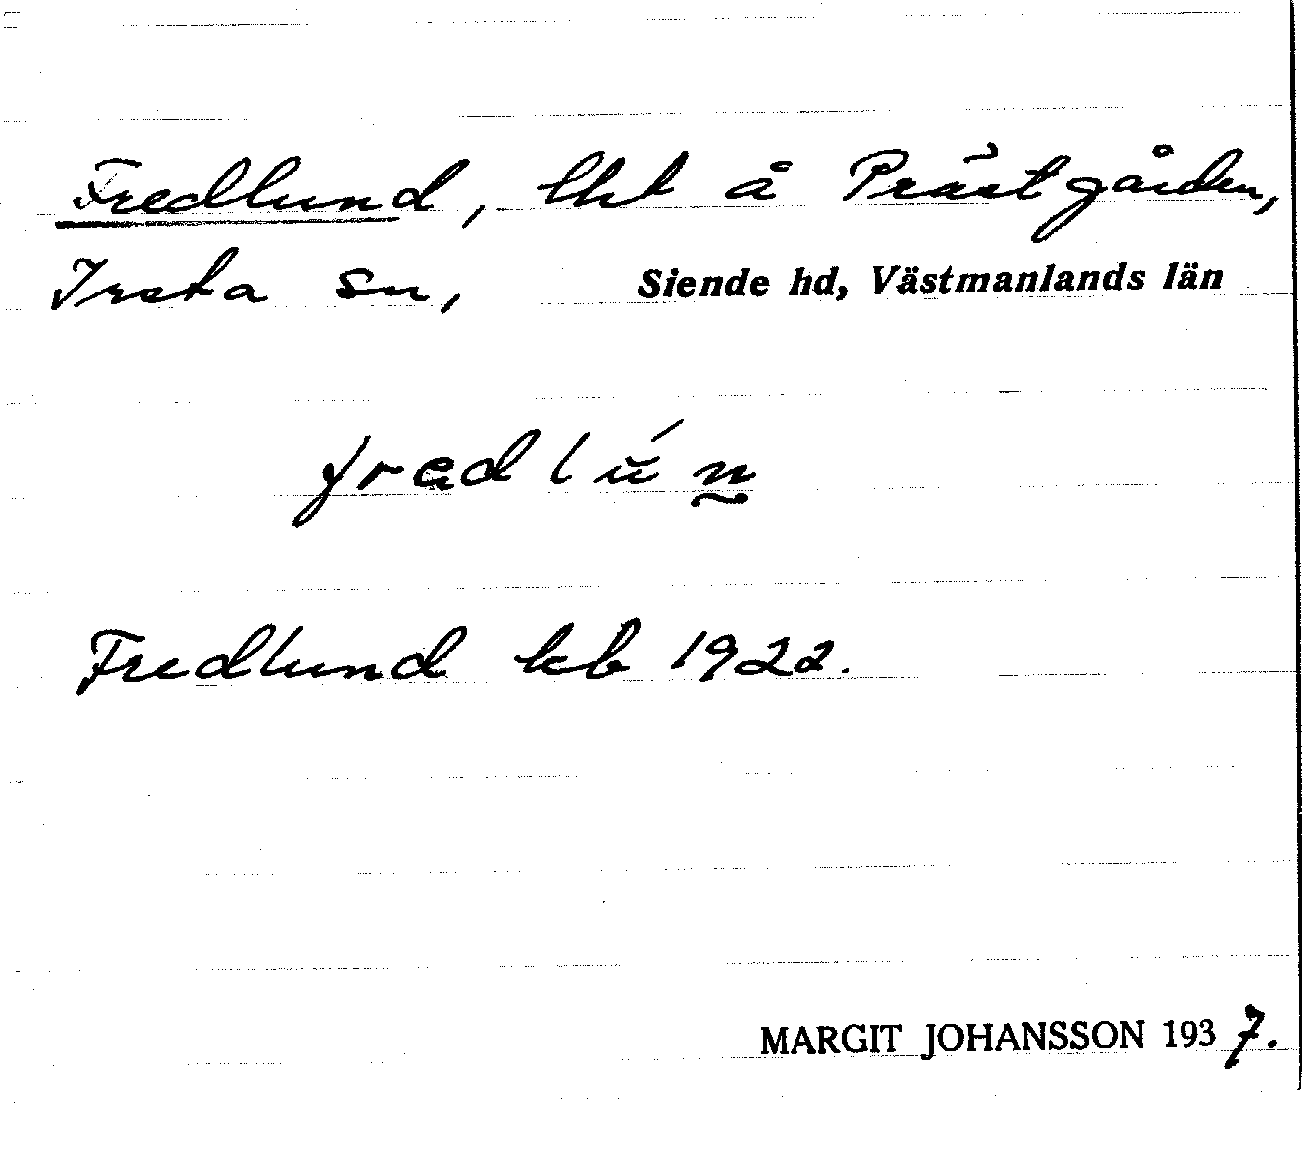 Fredlund, lht å Prästgården,
Irsta sn, Siende hd, Västmanlands län
fredlún
Fredlund kb 1922.
MARGIT JOHANSSON 1937.